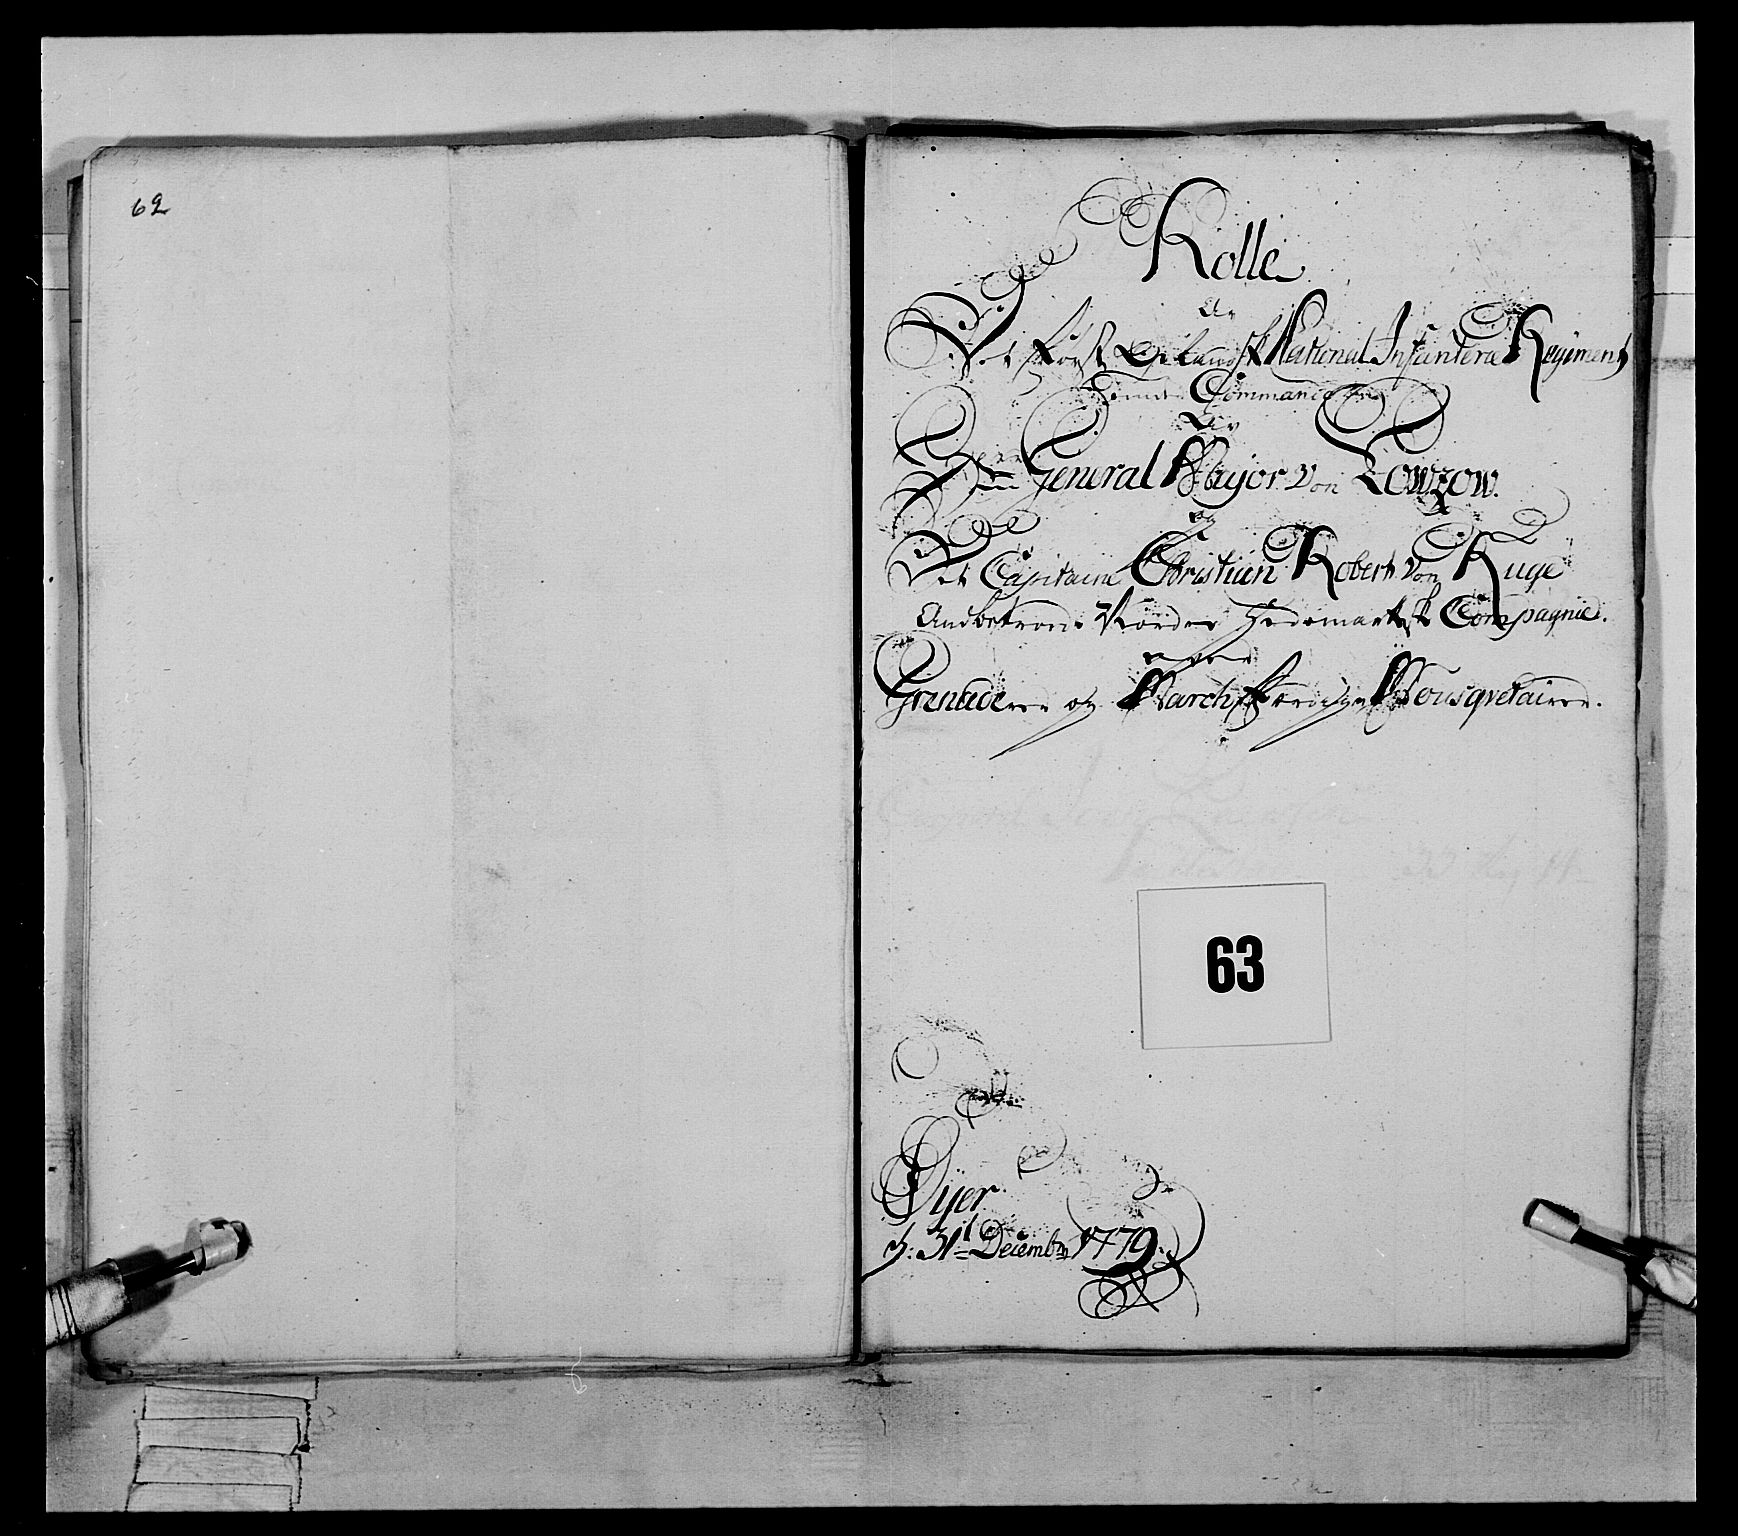 62
Rolle
Av
Det Først Oplandsk National Infanterie Regiment
Commande
Av
Herr General Major von Lowzow.
og
Det Capitaine Christian Robert von Kuge
Anbetroede Nordre Hedemarksk Compagnie.
over
Grenaderer og March Færdige Mousqvetairer.
63
Øyer
d: 31t Decembr 1779.